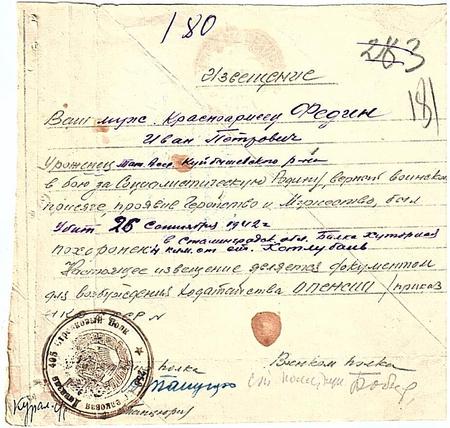 180
283
181
Извещение
Ваш муж Красноармеец Федин
Иван Петрович
Уроженец Тат. Асср. Куйбышевского р-на
в бою за Социалистическую Родину, верный воинской
присяге, проявив Геройство и Мужество, был
Убит 26 Сентября 1942 г
в Сталинградск. обл. Балка Хуторная
похоронен 4 клм. от ст. Котлубань
Настоящее извещение является документом
для возбуждения ходатайства о пенсии /приказ
НКО СССР №
полка Военком полка